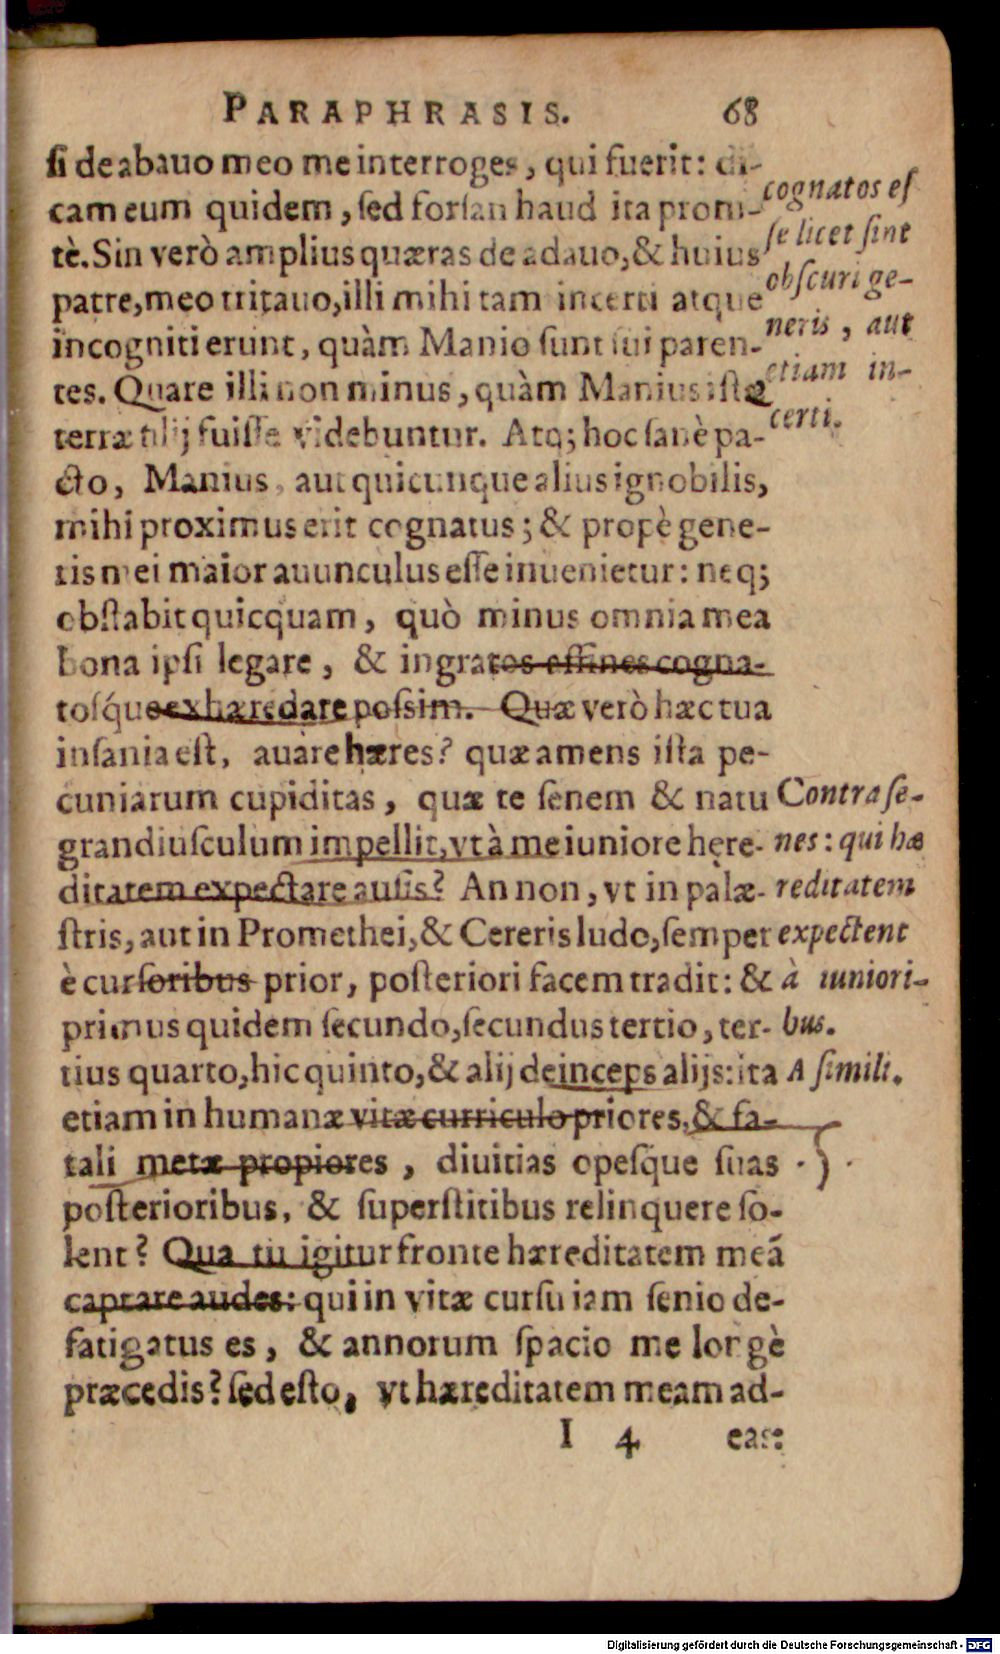 PARAPHRASIS. 68
ſi de abauo meo me interroges, qui fuerit: di-
cam eum quidem, ſed forſan haud ita prom-
tè. Sin verò amplius quæras de adauo, & huius
patre, meo tritauo, illi mihi tam incerti atque
incogniti erunt, quàm Manio ſunt ſui paren-
tes. Quare illi non minus, quàm Manius iſtæ
terræ filij fuiſſe videbuntur. Atq; hoc ſanè pa-
cto, Manius, aut quicunque alius ignobilis,
mihi proximus erit cognatus; & propè gene-
ris mei maior auunculus eſſe inuenietur: neq;
obſtabit quicquam, quò minus omnia mea
bona ipſi legare, & ingratos affines cogna-
toſq́ue exhæredare poſsim. Quæ verò hæc tua
inſania eſt, auare hæres? quæ amens iſta pe-
cuniarum cupiditas, quæ te ſenem & natu
grandiuſculum impellit, vt à me iuniore here-
ditatem expectare auſis? An non, vt in palæ-
ſtris, aut in Promethei, & Cereris ludo, ſemper
è curſoribus prior, poſteriori facem tradit: &
primus quidem ſecundo, ſecundus tertio, ter-
tius quarto, hic quinto, & alij deinceps alijs: ita
etiam in humanæ vitæ curriculo priores, & fa-
tali metæ propiores, diuitias opeſq́ue ſuas
poſterioribus, & ſuperſtitibus relinquere ſo-
lent? Qua tu igitur fronte hæreditatem meā
captare audes: qui in vitæ curſu iam ſenio de-
fatigatus es, & annorum ſpacio me longè
præcedis? ſed eſto, vt hæreditatem meam ad-
I 4 eas:
cognatos eſ
ſe licet ſint
obſcuri ge-
neris, aut
etiam in-
certi.
Contra ſe-
nes: qui hæ
reditatem
expectent
à iuniori-
bus.
A ſimili.
Digitalisierung gefördert durch die Deutsche Forschungsgemeinschaft - DFG